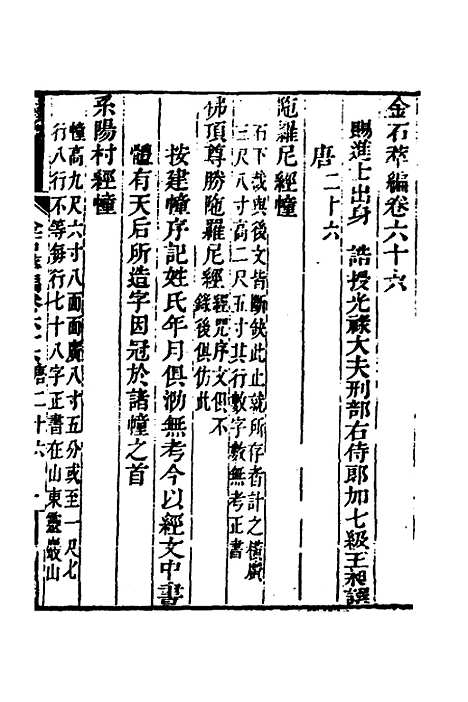 金石萃編卷六十六
賜進士出身 誥授光祿大夫刑部右侍郎加七級王昶譔
唐二十六
陁羅尼經幢
石下截與後文皆斷缺此止就所存者計之橫廣
三尺八寸高二尺五寸其行數字數無考正書
佛頂尊勝陁羅尼經經咒序文俱不
錄後俱仿此
按建幢序記姓氏年月俱泐無考今以經文中書
體有天后所造字因冠於諸幢之首
系陽村經幢
幢高九尺六寸八面面廣八寸五分或至一尺七
行八行不等每行七十八字正書在山東靈巖山
金石萃編卷六十六唐二十六 一